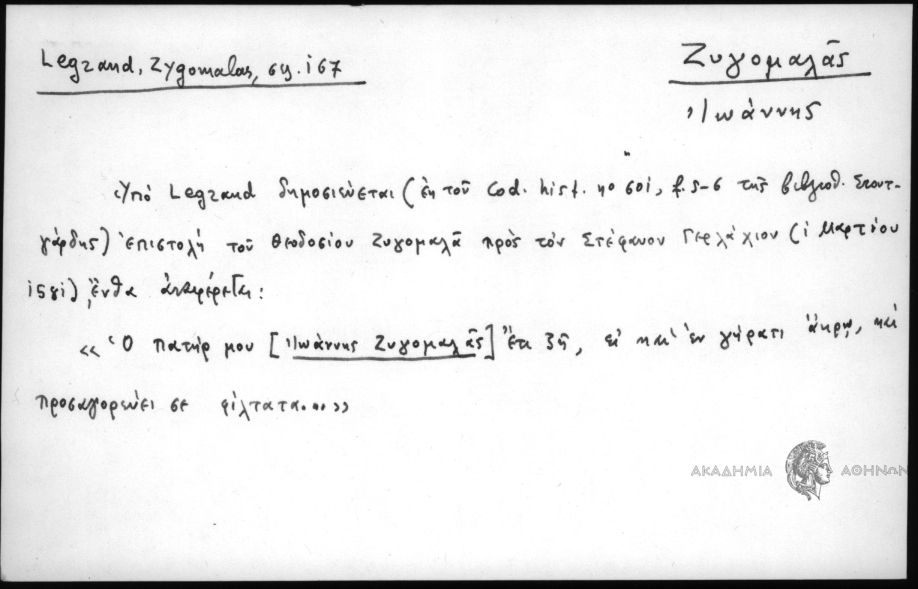 Legrand, Zygomalas, σελ. 167
Ζυγομαλᾶς
Ἰωάννης
Ὑπό Legrand δημοσιεύεται (ἐκ τοῦ Cod. hist. no 601, f. 5-6 τῆς βιβλιοθ. Στουτ-
γάρδης) ἐπιστολή τοῦ Θεοδοσίου Ζυγομαλᾶ πρός τόν Στέφανον Γερλάχιον (1 Μαρτίου
1581), ἔνθα ἀναφέρεται:
« Ὁ πατήρ μου [Ἰωάννης Ζυγομαλᾶς] ἔτι ζῇ, εἰ καί ἐν γήρατι ἄκρῳ, καί
προσαγορεύει σε φίλτατα...»
ΑΚΑΔΗΜΙΑ ΑΘΗΝΩΝ